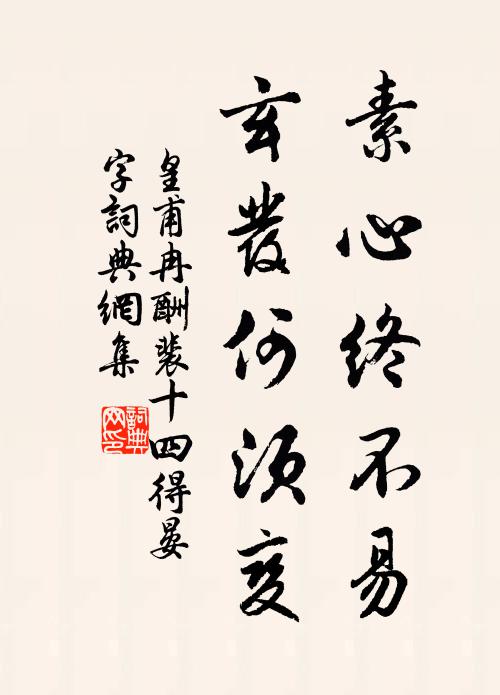 素心終不易
玄發何須變
皇甫冉酬裴十四得晏
字詞典網集
詞典
网印